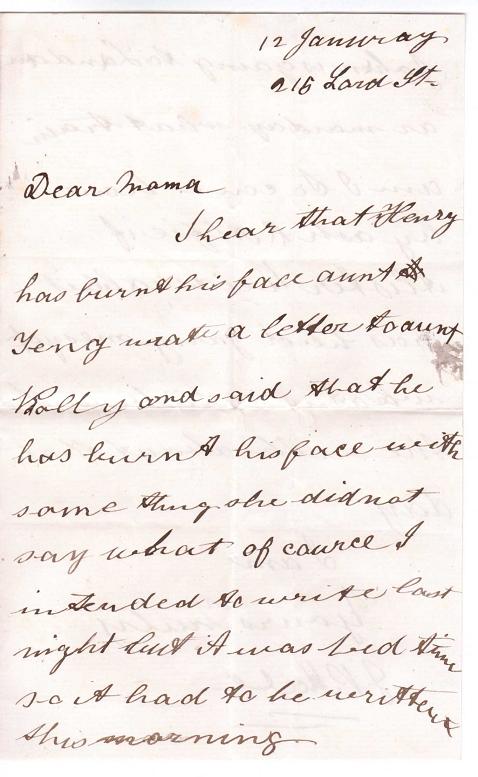 12 January
215 Lord St.
Dear Mama
I hear that Henry
has burnt his face aunt
Teny wrate a letter to aunt
Polly and said that he
has burnt his face with
some thing she did not
say what of cource I
intended to write last
night but it was bed time
so it had to be written
this morning